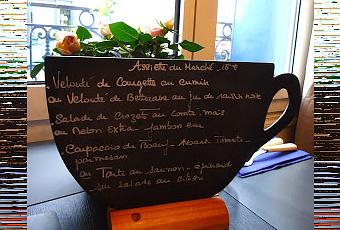 Assiette du Marché 15 €
- Velouté de Courgette au cumin
ou Velouté de Betterave au jus de
- Salade de Crozets au Comté mais
- ou Melon Extra - Jambon cru
- Carpaccio de Boeuf - Tomate -
parmesan
ou Tarte au saumon - épinard
sur salade au citron